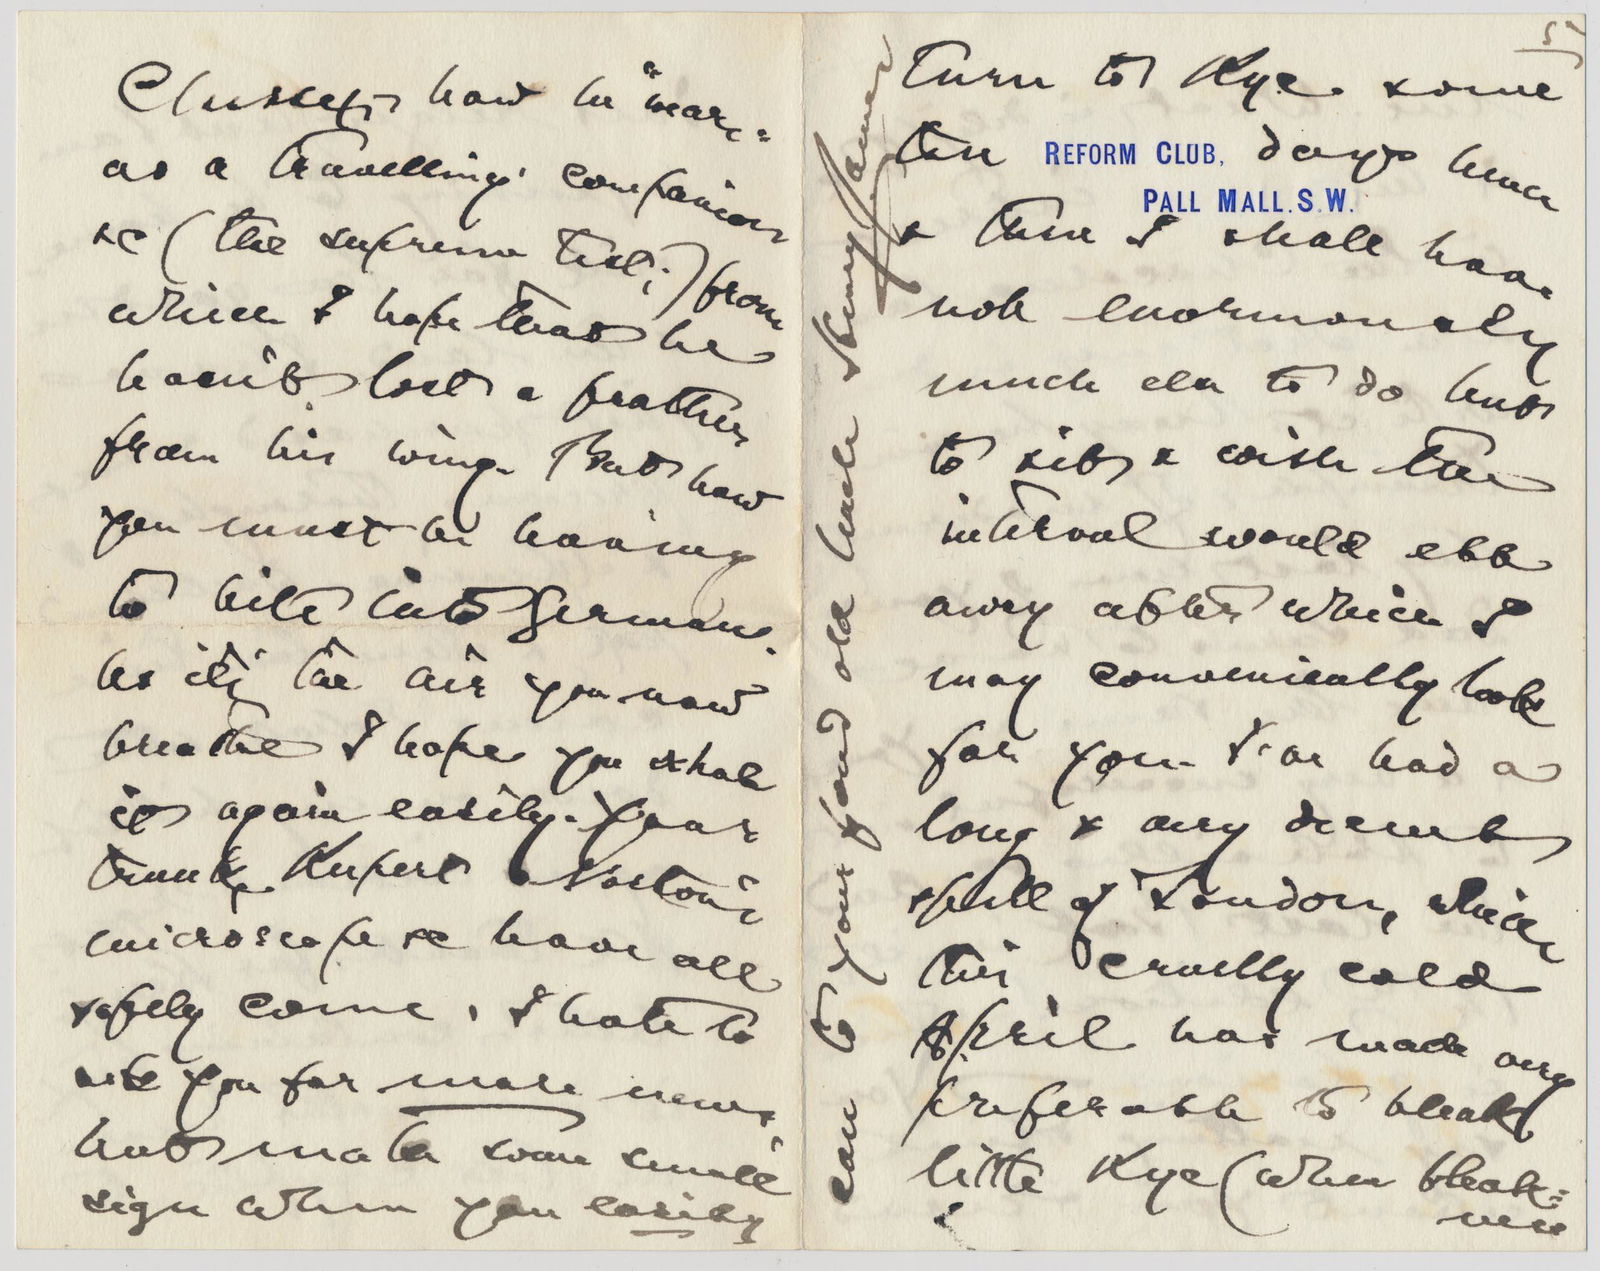 Clusseyn how he "wear,"
as a travelling companion
&c (the supreme test;) from
which I hope that he
hasn't lost a feather
from his wing. But how
you must be having
to bite into German.
As it's the air you now
breathe I hope you exhale
it again easily. Your
trunk, Rupert Norton's
microscope &c have all
safely come. I hate to
ask you for more news,
but make some small
sign when you easily
can to your fond old uncle Henry James
5
turn to Rye some
ten days hence
REFORM CLUB,
PALL MALL.S.W.
& then I shall have
not enormously
much else to do but
to sit & wish the
interval would ebb
away after which I
may conveniently look
for you. I've had a
long & very decent
spell of London, which
this cruelly cold
April has made very
preferable to bleak
little Rye (when bleak=
ness